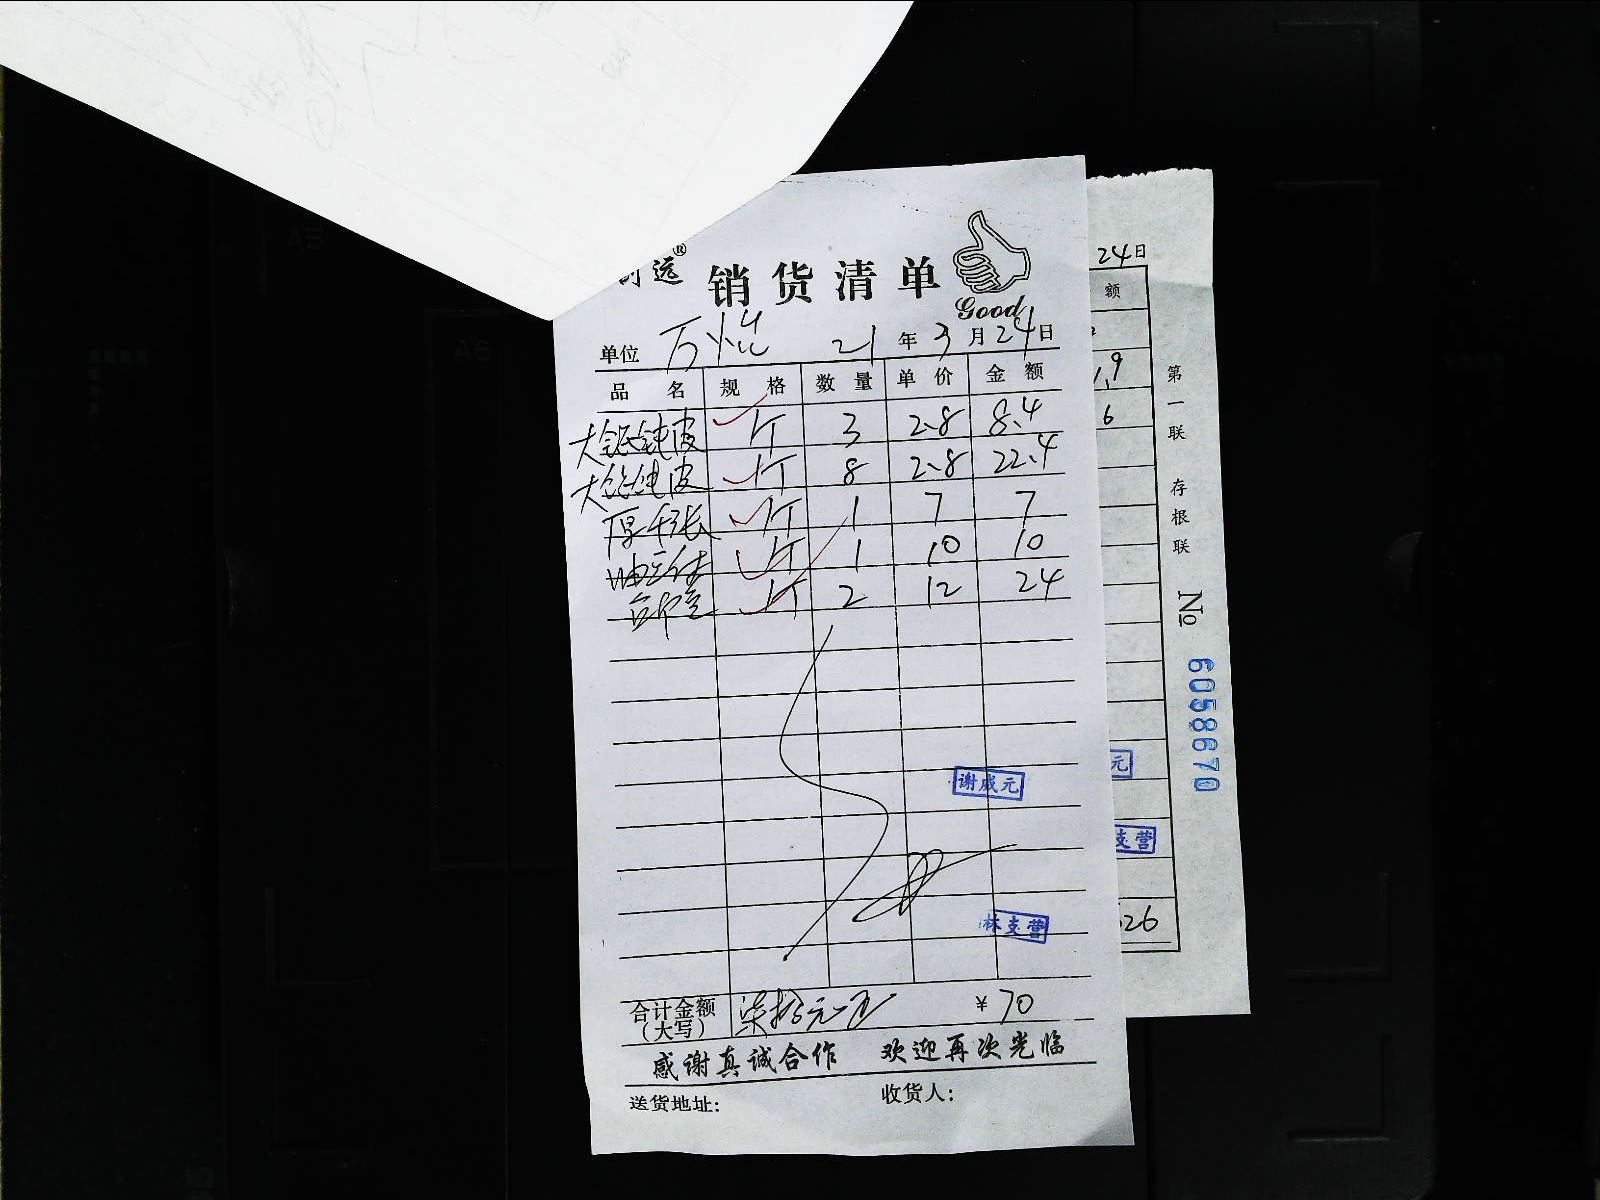 远®
销货清单
Good
单位 万 21年3月24日
品名 规格 数量 单价 金额
大 皮 斤 3 2.8 8.4
大 皮 斤 8 2.8 22.4
厚千张 斤 1 7 7
油 斤 1 10 10
斤 2 12 24
谢成元
林支营
合计金额（大写） 柒拾元正 ¥70
感谢真诚合作 欢迎再次光临
送货地址: 收货人:
24日
额
9
6
元
支营
26
第一联 存根联 № 6058670
A5
A6